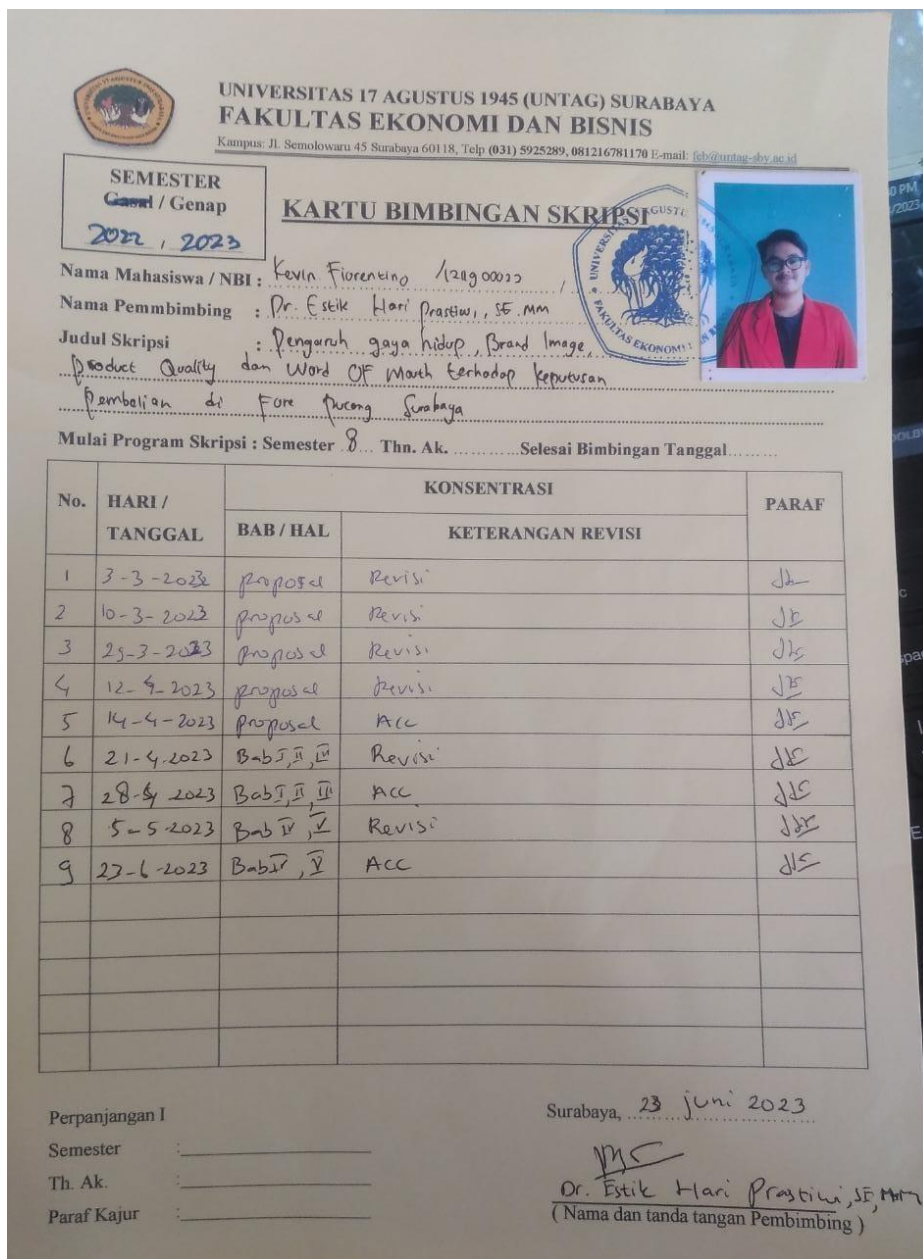 UNIVERSITAS 17 AGUSTUS 1945 (UNTAG) SURABAYA
FAKULTAS EKONOMI DAN BISNIS
Kampus: Jl. Semolowaru 45 Surabaya 60118, Telp (031) 5925289, 081216781170 E-mail: feb@untag-sby.ac.id
SEMESTER
Gasal / Genap
2022 , 2023
KARTU BIMBINGAN SKRIPSI
Nama Mahasiswa / NBI : Kevin Fiorentino /
Nama Pemmbimbing : Dr. Estik Hari Prastiwi, SE. MM
Judul Skripsi : Pengaruh gaya hidup, Brand Image,
Product Quality dan Word OF Mouth terhadap keputusan
Pembelian di Fore Surabaya
Mulai Program Skripsi : Semester 8 Thn. Ak. ............Selesai Bimbingan Tanggal.........
No. HARI / TANGGAL KONSENTRASI PARAF
BAB / HAL KETERANGAN REVISI
1 3-3-2023 proposal Revisi
2 10-3-2023 proposal Revisi
3 29-3-2023 proposal Revisi
4 12-4-2023 proposal Revisi
5 14-4-2023 proposal Acc
6 21-4-2023 Bab I, II, III Revisi
7 28-4-2023 Bab I, II, III ACC
8 5-5-2023 Bab IV, V Revisi
9 23-6-2023 Bab IV, V ACC
Perpanjangan I
Semester :
Th. Ak. :
Paraf Kajur :
Surabaya, 23 juni 2023
Dr. Estik Hari Prastiwi, SE, MM
( Nama dan tanda tangan Pembimbing )